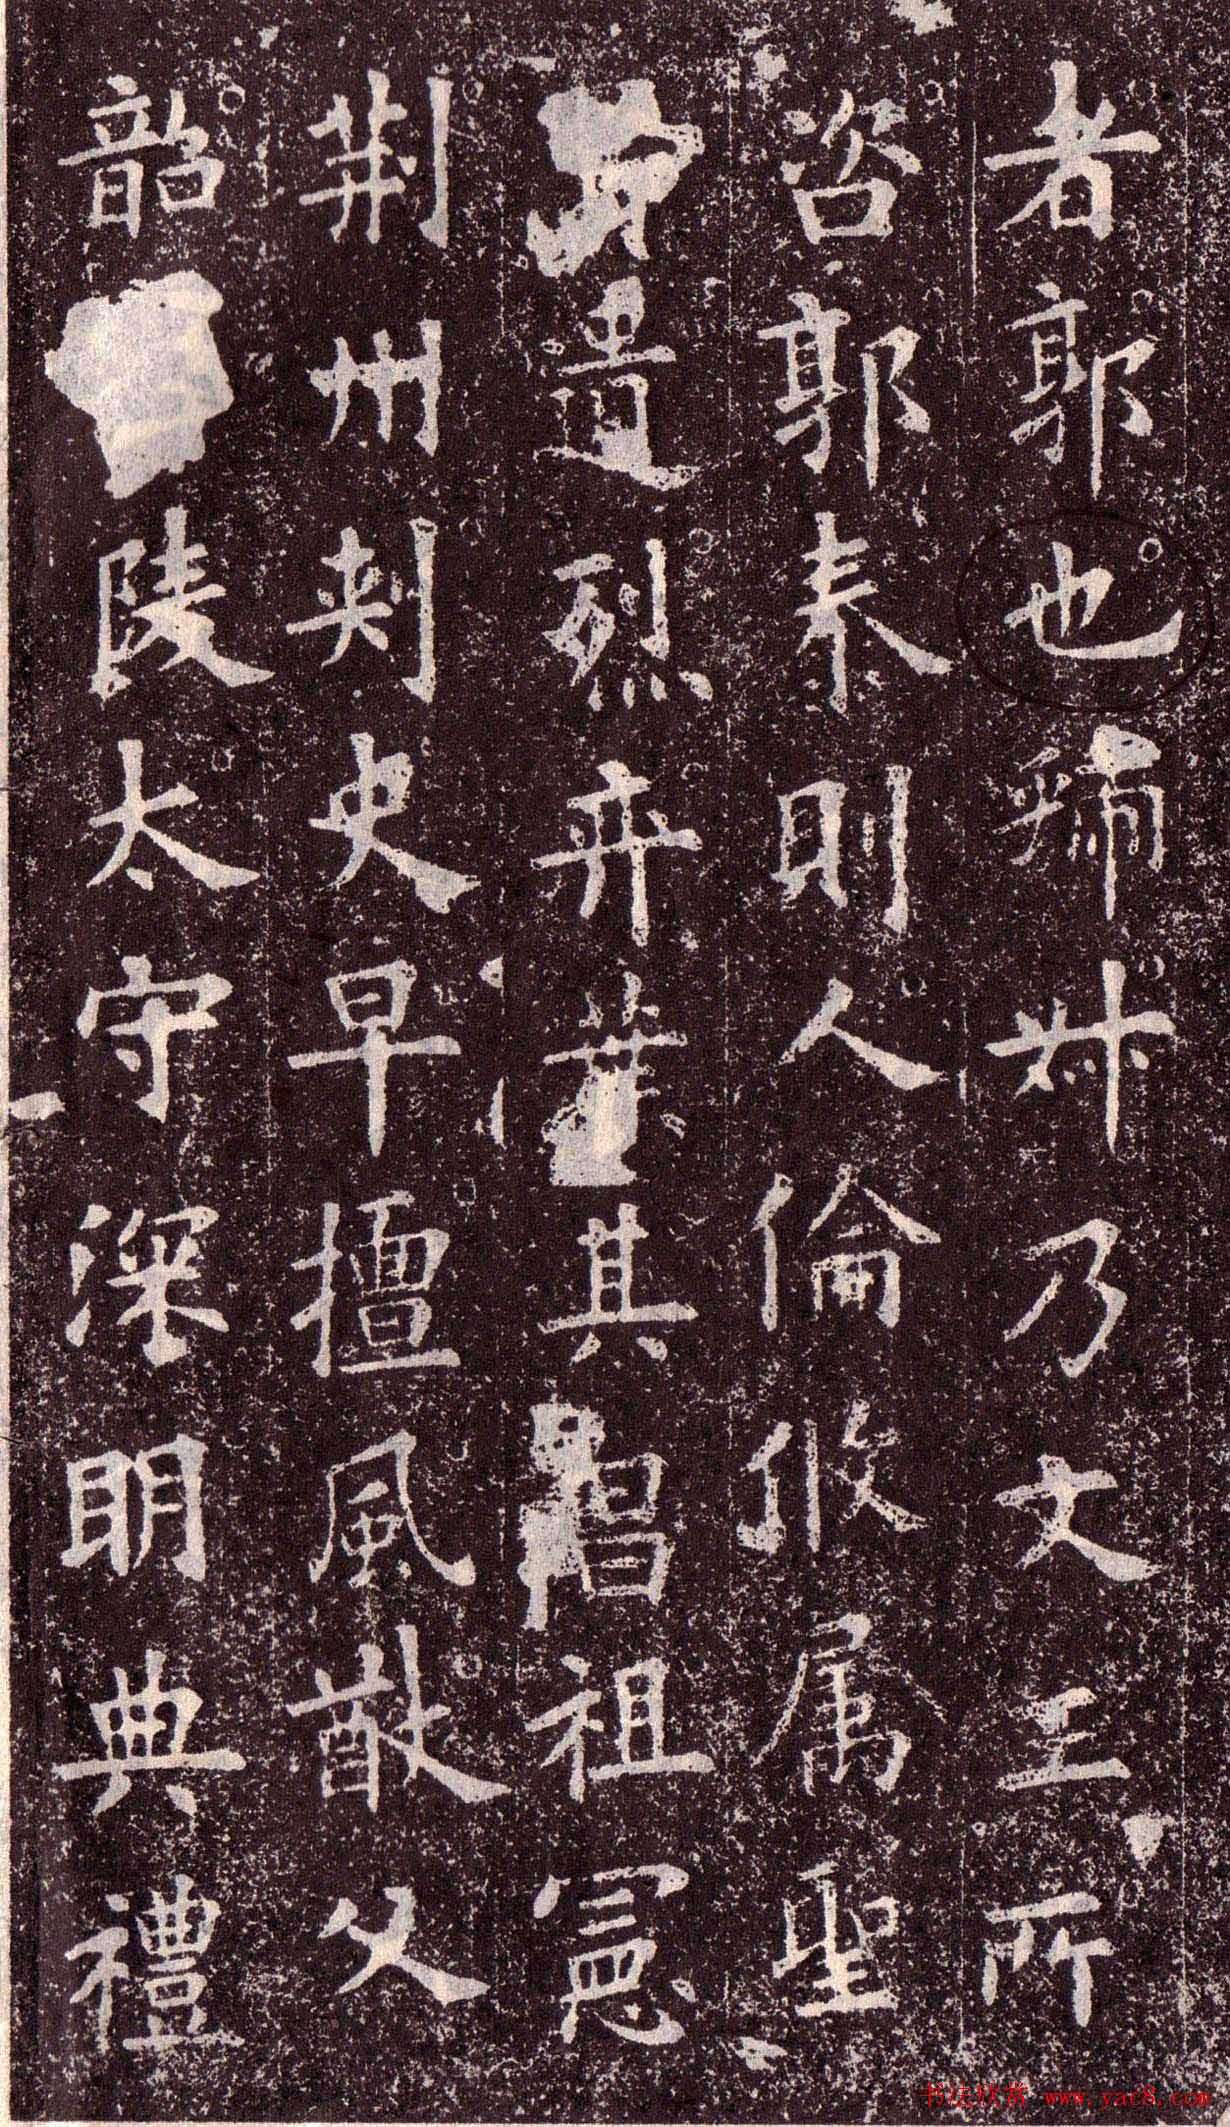 者郭也叔乃文王所
咨郭泰則人倫攸属聖
遺烈弈葉其昌祖憲
荊州刾史早擅風猷父
韶陵太守深明典禮
书法欣赏 www.yac8.com